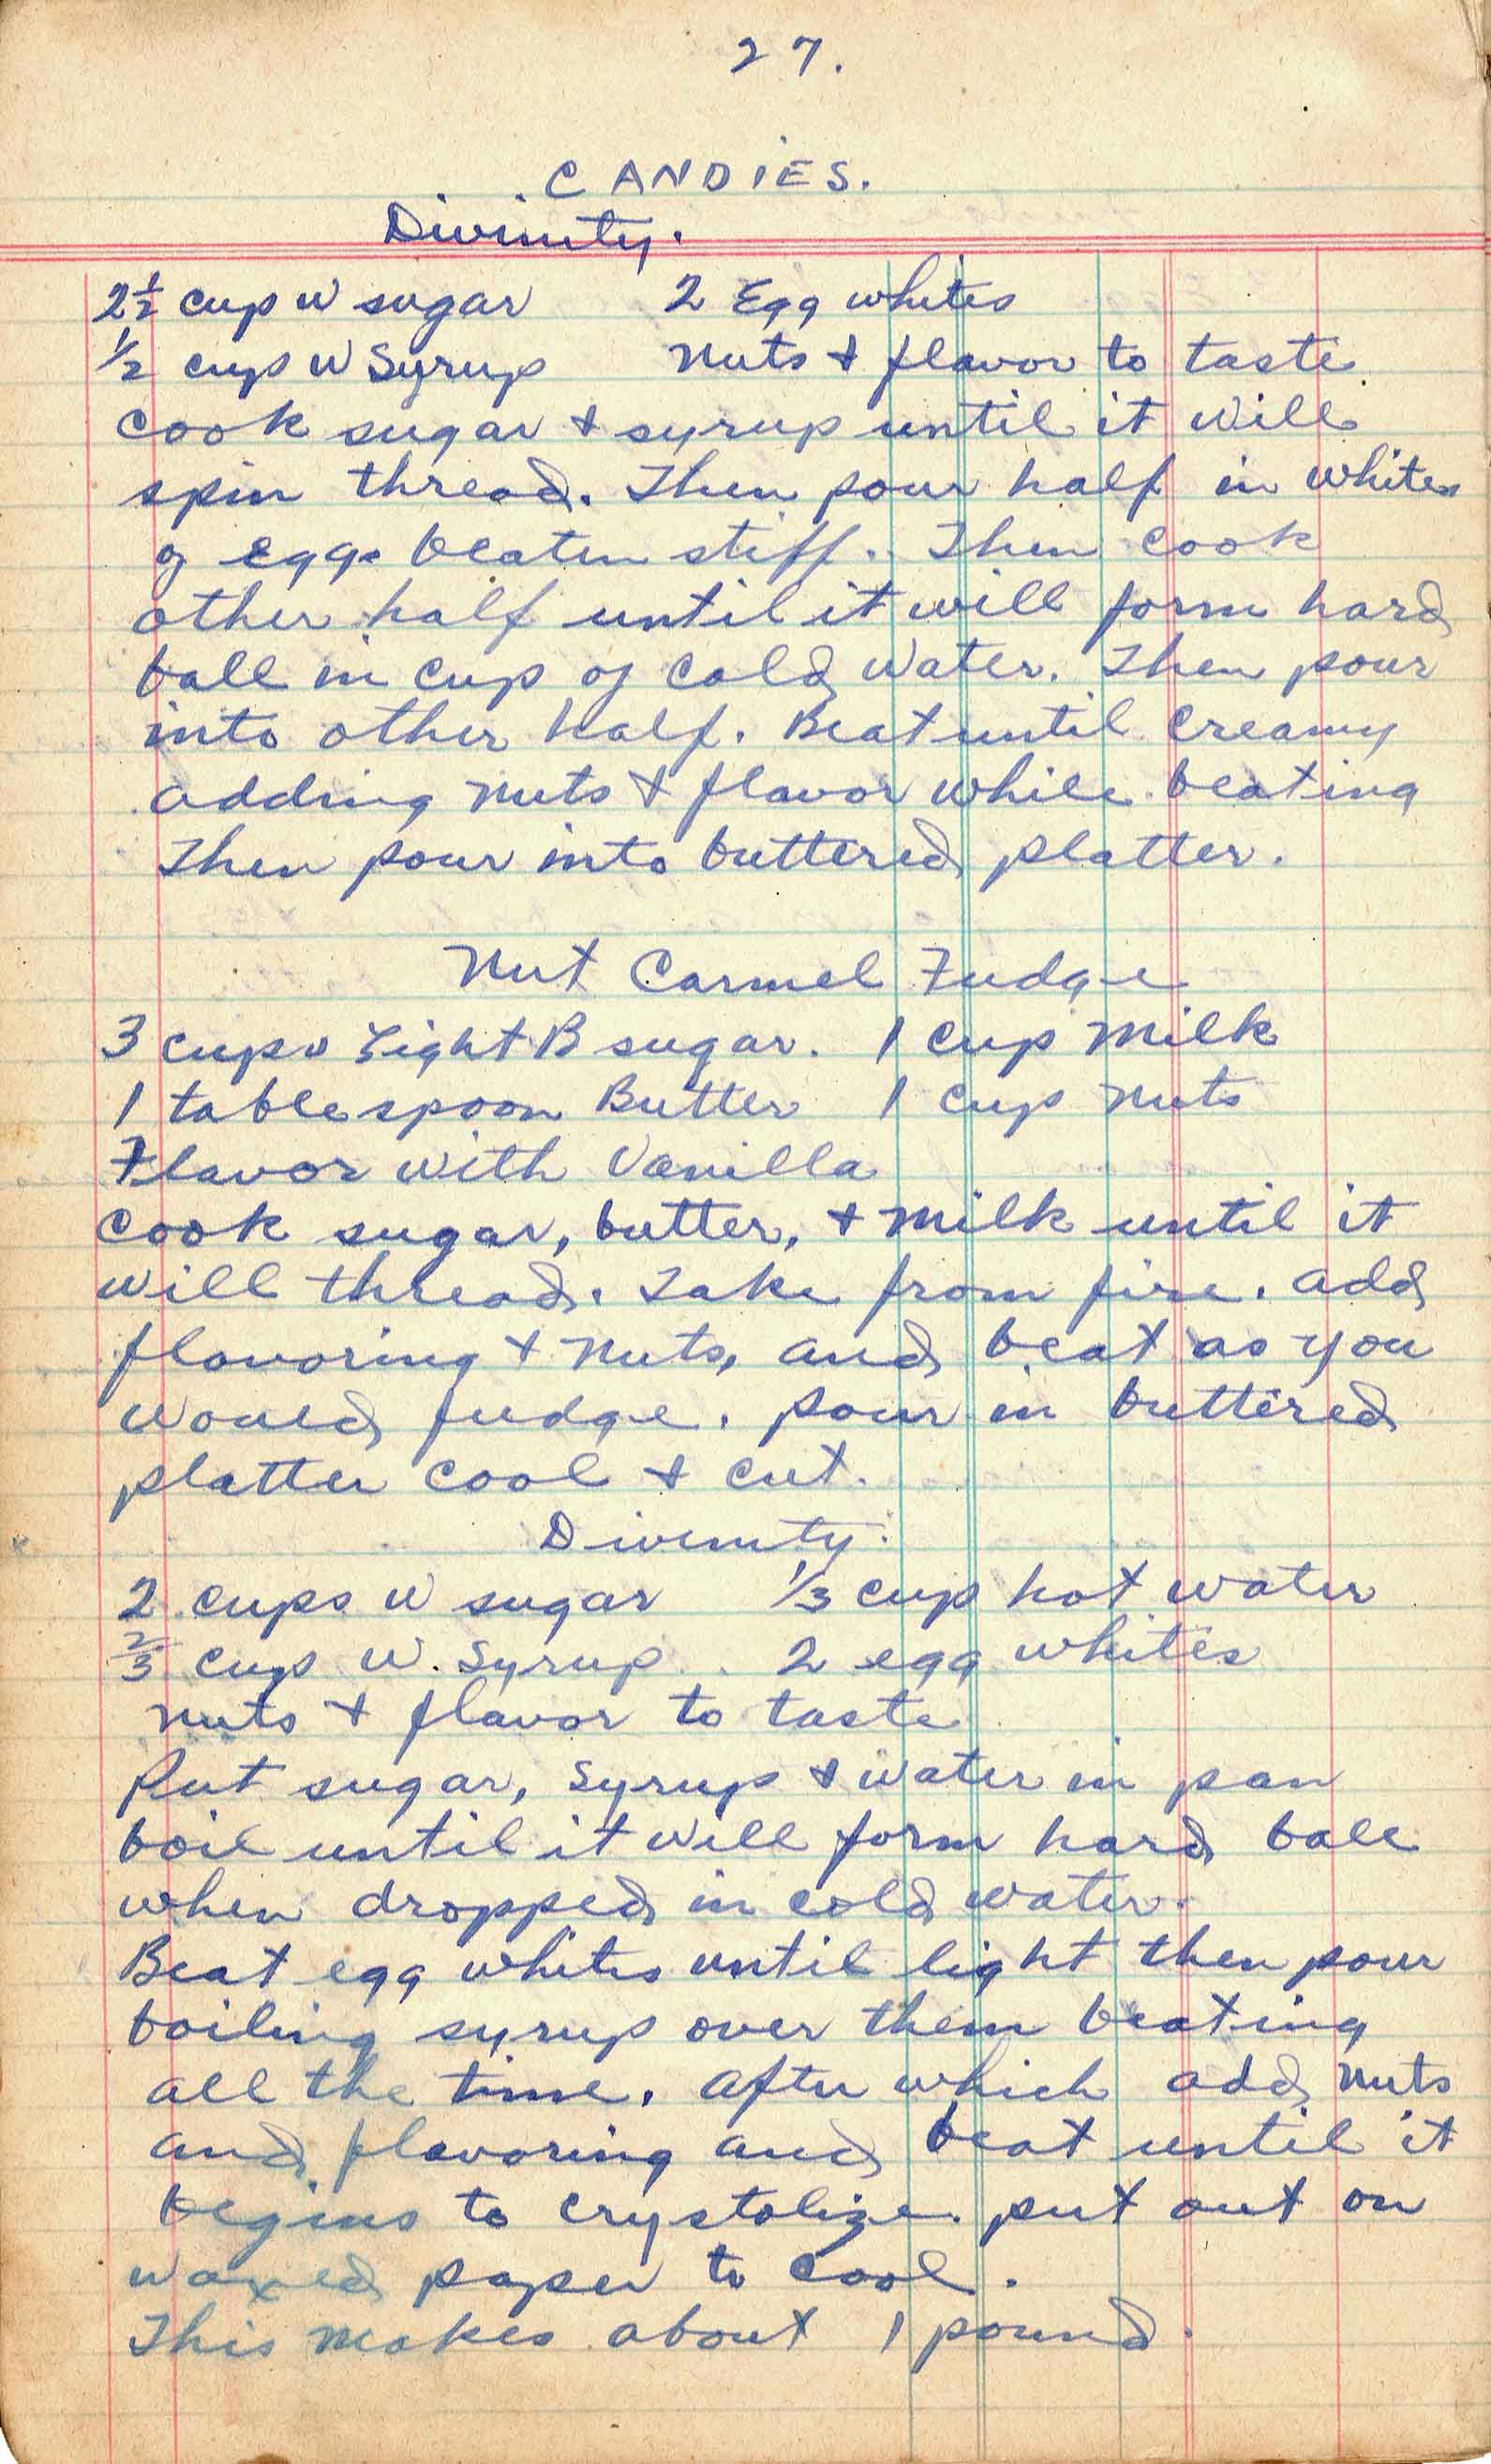 27.
CANDIES.
Divinity.
2½ cup w sugar 2 Egg whites
½ cup w Syrup Nuts + flavor to taste
Cook sugar + syrup until it will
spin thread. Then pour half in whites
of eggs beaten stiff. Then cook
other half until it will form hard
ball in cup of cold water. Then pour
into other half. Beat until creamy
adding nuts + flavor while beating
Then pour into buttered platter.
Nut Carmel Fudge
3 cups Light B sugar. 1 cup milk
1 tablespoon Butter 1 cup nuts
Flavor with Vanilla
Cook sugar, butter, + milk until it
will thread. Take from fire. add
flavoring + nuts, and beat as you
would fudge. pour in buttered
platter cool + cut.
Divinity.
2 cups w sugar 1/3 cup hot water
2/3 cup w. Syrup. 2 egg whites
nuts + flavor to taste
Put sugar, syrup + water in pan
boil until it will form hard ball
when dropped in cold water.
Beat egg whites until light then pour
boiling syrup over them beating
all the time. after which add nuts
and flavoring and beat until it
begins to crystolize. put out on
waxed paper to cool.
This makes about 1 pound.